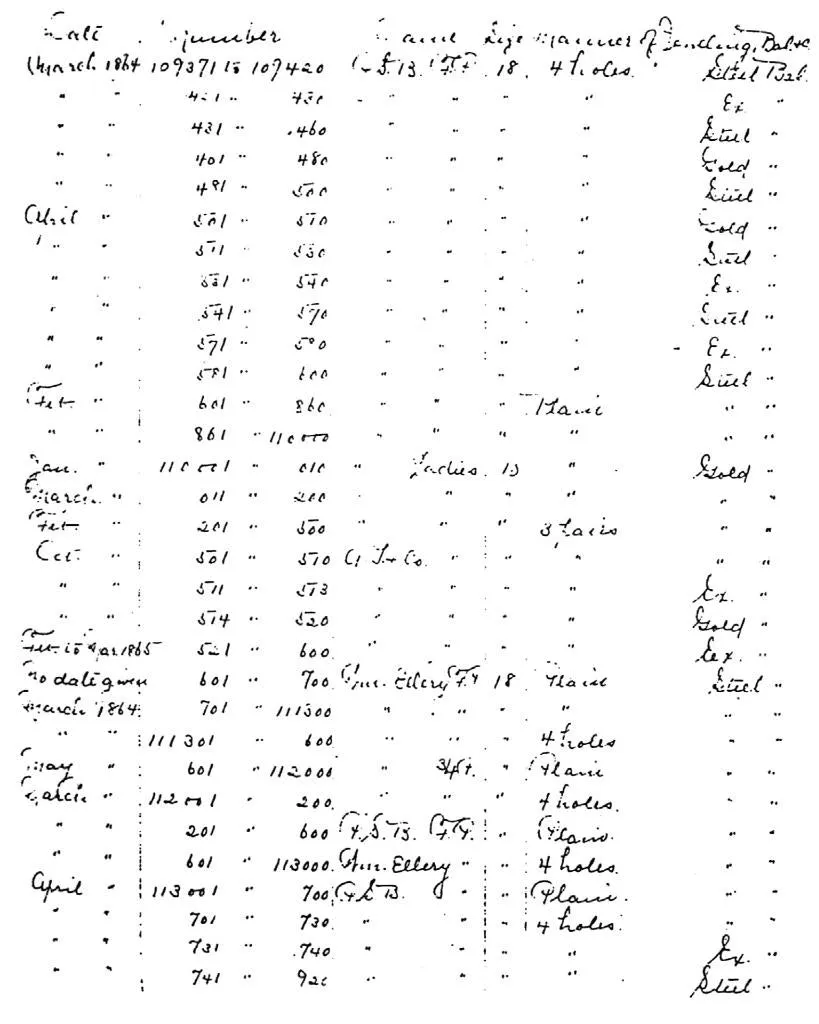 Date Number Name Size Manner of Jeweling, Bal. &c.
March 1864 109371 to 109420 P.S.B. F.P. 18 4 holes. Steel Bal.
" " 421 " 430 " " " " Ex "
" " 431 " 460 " " " " Steel "
" " 461 " 480 " " " " Gold "
" " 481 " 500 " " " " Steel "
April " 501 " 510 " " " " Gold "
" " 511 " 530 " " " " Steel "
" " 531 " 540 " " " " Ex. "
" " 541 " 570 " " " " Steel "
" " 571 " 580 " " " " Ex. "
" " 581 " 600 " " " " Steel "
Feb. " 601 " 860 " " " Plain " "
" " 861 " 110000 " " " " " "
Jan. " 110001 " 010 " Ladies 10 " Gold "
March " 011 " 200 " " " " " "
Feb. " 201 " 500 " " " 3 pairs " "
Oct. " 501 " 510 A. T. & Co. " " " " "
" " 511 " 513 " " " " Ex. "
" " 514 " 520 " " " " Gold "
Feb. to Mar. 1865 521 " 600 " " " " Ex. "
No date given 601 " 700 Wm. Ellery F.P. 18 Plain Steel "
March 1864 701 " 111300 " " " " " "
" " 111301 " 600 " " " 4 holes " "
May " 601 " 112000 " 3/4 P. " Plain " "
March " 112001 " 200 " " " 4 holes. " "
" " 201 " 600 P.S.B. F.P. " Plain " "
" " 601 " 113000. Wm. Ellery " " 4 holes. " "
April " 113001 " 700 P.S.B. " " Plain. " "
" " 701 " 730 " " " 4 holes. " "
" " 731 " 740 " " " " Ex. "
" " 741 " 920 " " " " Steel "